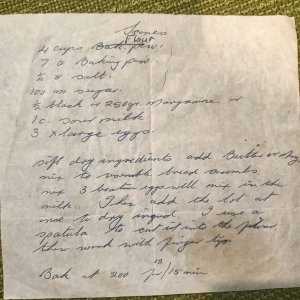 Scones
Flour
4 cups Bak. pow.
7 t Baking pow
¼ t salt.
100 ml sugar.
½ block or 250gr Margarine. or
1 c. sour milk
3 x large eggs.
Sift dry ingredients add Butter or Marg
mix to resemble bread crumbs
mix 3 beaten eggs well mix in the
milk. Then add the lot at
once to dry ingred. I use a
spatula to cut it into the
then work with finger tips
Bak at 200 for 12/15 min